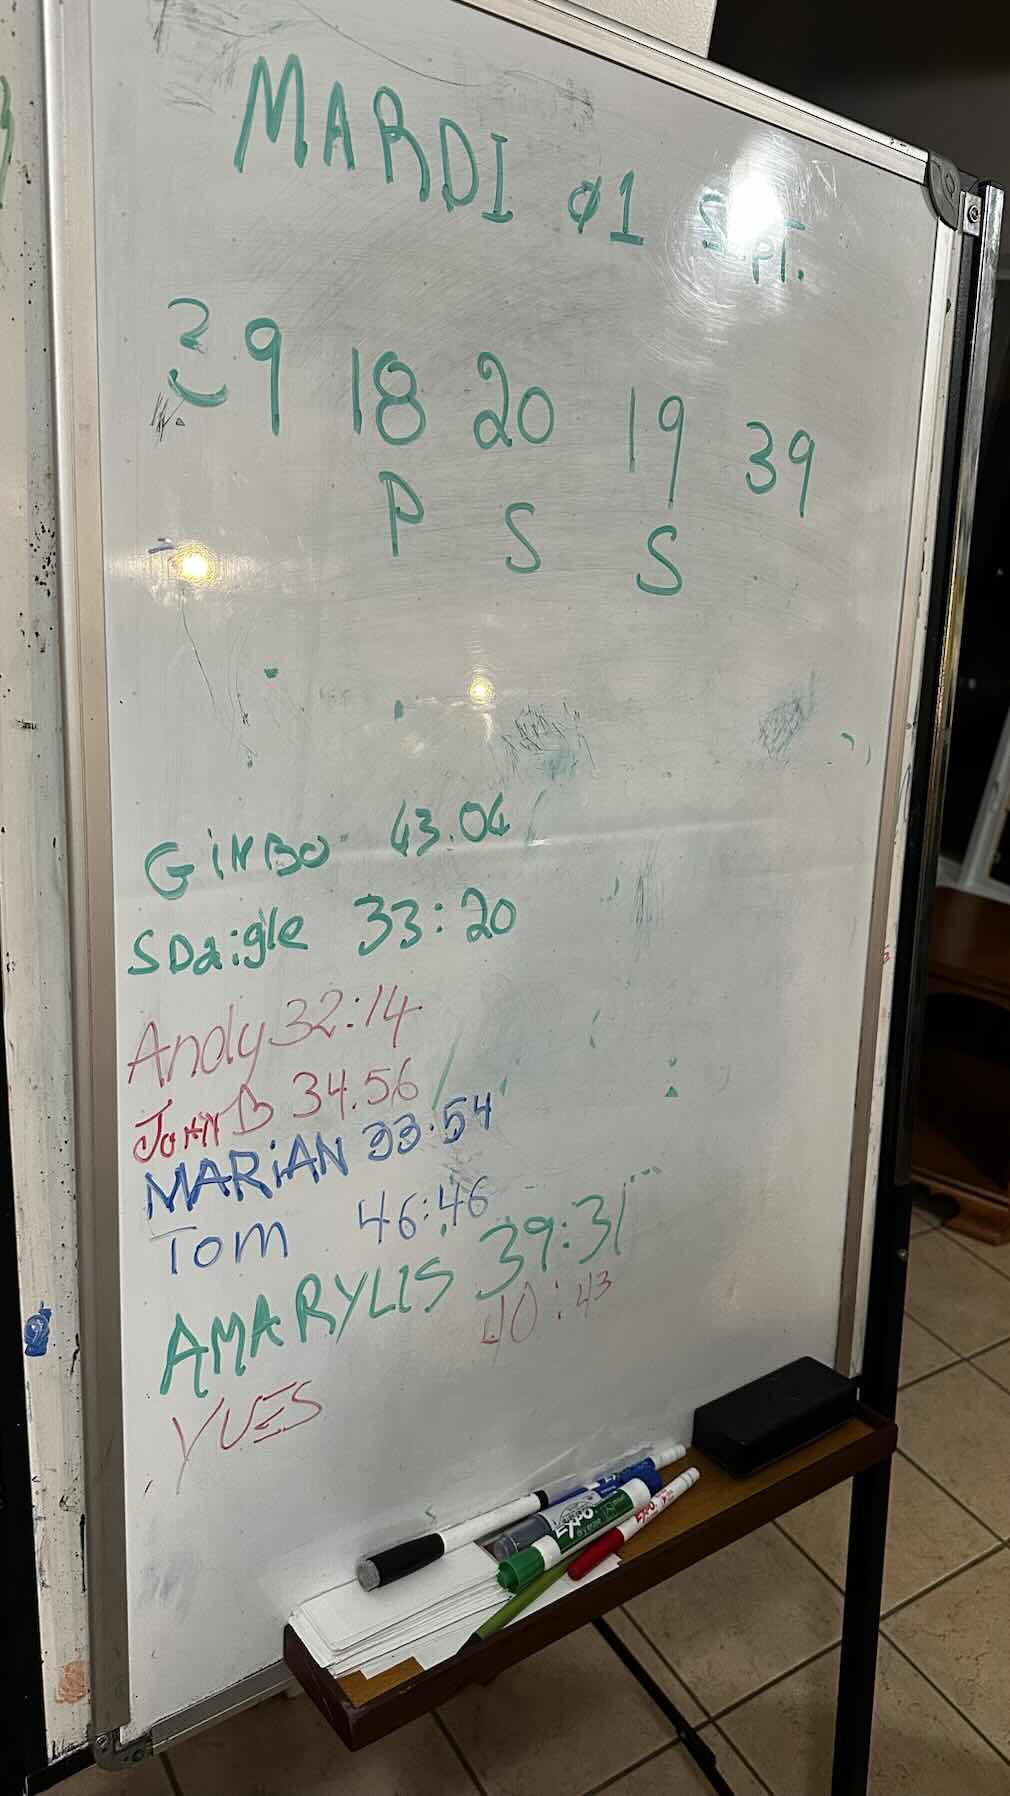 MARDI 01 Sept.
2 9 18 20 19 39
P S S
GiNBO 43.04
SDaigle 33:20
Andy 32:14
JOHN B 34.56
MARiAN 33.54
Tom 46:46
AMARYLIS 39:31
YVES 40:43
EXPO
EXPO